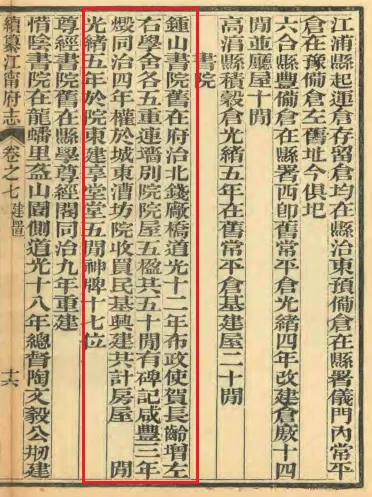 江浦縣起運倉存留倉均在縣治東預備倉在縣署儀門內常平
倉在豫備倉左舊址今俱圮
六合縣豐備倉在縣署西卽舊常平倉光緒四年改建倉廒十四
閒並廳屋十閒
高淳縣積穀倉光緒五年在舊常平倉基建屋二十閒
書院
鍾山書院舊在府治北錢廠橋道光十二年布政使賀長齡增左
右學舍各五重連牆別院院屋五楹共五十閒有碑記咸豐三年
燬同治四年權於城東漕坊院收買民基興建共計房屋　閒
光緒五年於院東建享堂堂五閒神牌十七位
尊經書院舊在縣學尊經閣同治九年重建
惜陰書院在龍蟠里盋山園側道光十八年總督陶文毅公剏建
續纂江甯府志 卷之七 建置 十六